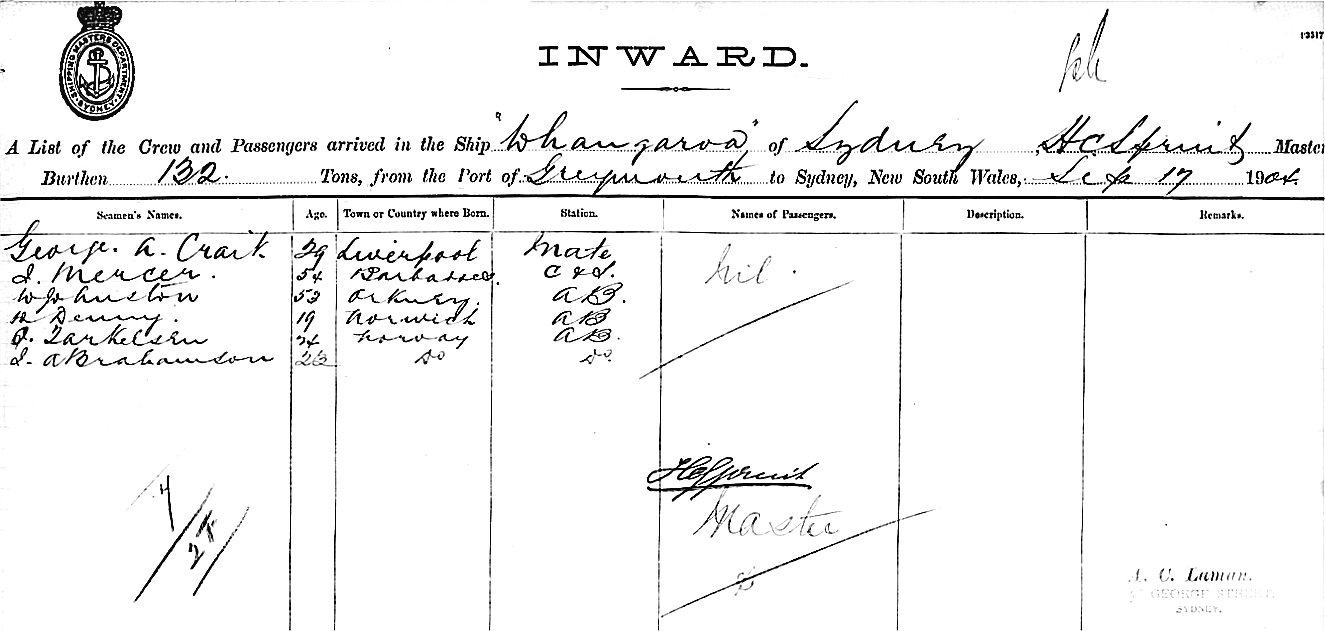 SHIPPING MASTERS DEPARTMENT. SYDNEY.
INWARD.
A List of the Crew and Passengers arrived in the Ship "Whangaroa" of Sydney H C Spruit Master
Burthen 132. Tons, from the Port of Greymouth to Sydney, New South Wales, Sep 17 1904.
Seamen's Names. Age. Town or Country where Born. Station. Names of Passengers. Description. Remarks.
George. A. Craik. 29 Liverpool Mate Nil.
J. Mercer. 54 Barbadoes. C & S.
W Johnston 53 Orkney. AB.
Denny. 19 Norwich AB
Tarkelsen 24 Norway AB.
J. Abrahamson 26 Do Do.
H C Spruit
Master
A. C. Laman.
GEORGE STREET.
SYDNEY.